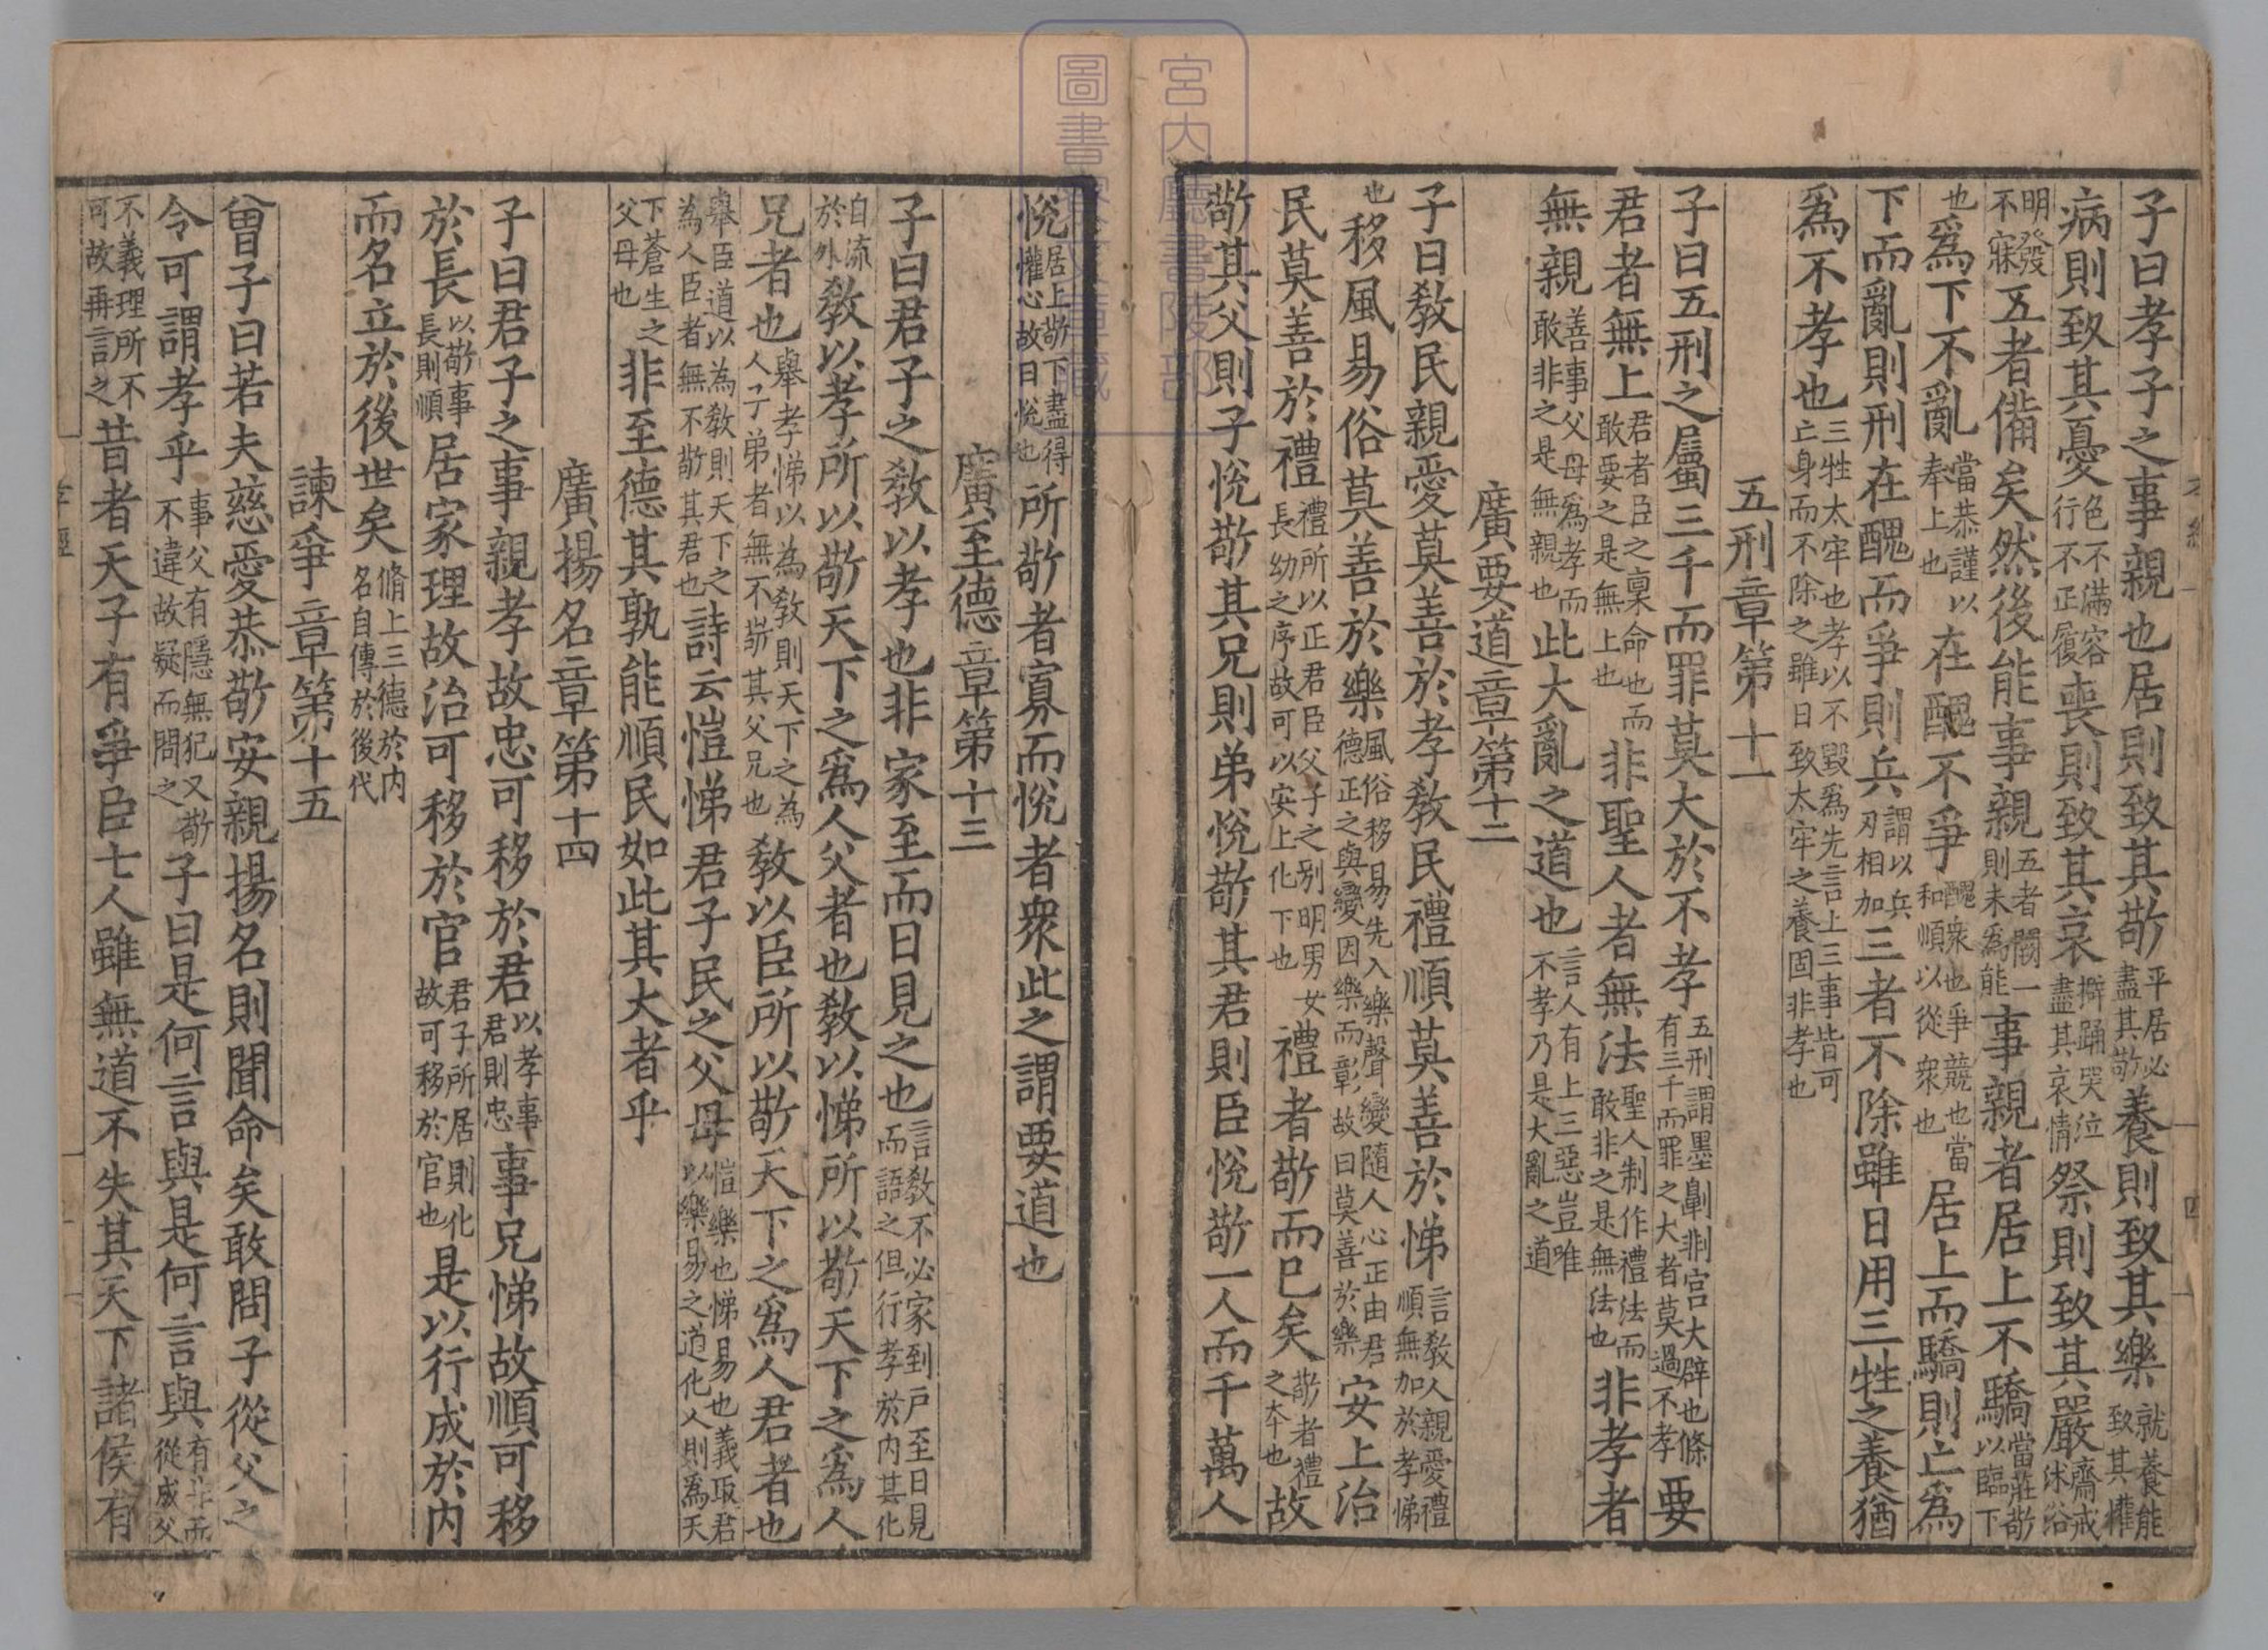 子曰孝子之事親也居則致其敬平居必盡其敬養則致其樂就養能致其懽
病則致其憂色不滿容行不正履喪則致其哀擗踊哭泣盡其哀情祭則致其嚴齋戒沐浴
明發不寐五者備矣然後能事親五者闕一則未爲能事親者居上不驕當莊敬以臨下
也爲下不亂當恭謹以奉上也在醜不爭醜衆也爭競也當和順以從衆也居上而驕則亡爲
下而亂則刑在醜而爭則兵謂以兵刃相加三者不除雖日用三牲之養猶
爲不孝也三牲太牢也孝以不毀爲先言上三事皆可亡身而不除之雖日致太牢之養固非孝也
五刑章第十一
子曰五刑之屬三千而罪莫大於不孝五刑謂墨劓剕宮大辟也條有三千而罪之大者莫過不孝要
君者無上君者臣之稟命也而敢要之是無上也非聖人者無法聖人制作禮法而敢非之是無法也非孝者
無親善事父母爲孝而敢非之是無親也此大亂之道也言人有上三惡豈唯不孝乃是大亂之道
廣要道章第十二
子曰敎民親愛莫善於孝敎民禮順莫善於悌言敎人親愛禮順無加於孝悌
也移風易俗莫善於樂風俗移易先入樂聲變隨人心正由君德正之與變因樂而彰故曰莫善於樂安上治
民莫善於禮禮所以正君臣父子之別明男女長幼之序故可以安上化下也禮者敬而已矣敬者禮之本也故
敬其父則子悅敬其兄則弟悅敬其君則臣悅敬一人而千萬人
悅居上敬下盡得懽心故曰悅也所敬者寡而悅者衆此之謂要道也
廣至德章第十三
子曰君子之敎以孝也非家至而日見之也言敎不必家到戶至日見而語之但行孝於內其化
自流於外敎以孝所以敬天下之爲人父者也敎以悌所以敬天下之爲人
兄者也舉孝悌以爲敎則天下之爲人子弟者無不敬其父兄也敎以臣所以敬天下之爲人君者也
舉臣道以爲敎則天下之爲人臣者無不敬其君也詩云愷悌君子民之父母愷樂也悌易也義取君以樂易之道化人則爲天
下蒼生之父母也非至德其孰能順民如此其大者乎
廣揚名章第十四
子曰君子之事親孝故忠可移於君以孝事君則忠事兄悌故順可移
於長以敬事長則順居家理故治可移於官君子所居則化故可移於官也是以行成於內
而名立於後世矣脩上三德於內名自傳於後代
諫爭章第十五
曾子曰若夫慈愛恭敬安親揚名則聞命矣敢問子從父之
令可謂孝乎事父有隱無犯又敬不違故疑而問之子曰是何言與是何言與有非而從成父
不義理所不可故再言之昔者天子有爭臣七人雖無道不失其天下諸侯有
宮内廳書陵部
圖書寮文庫藏